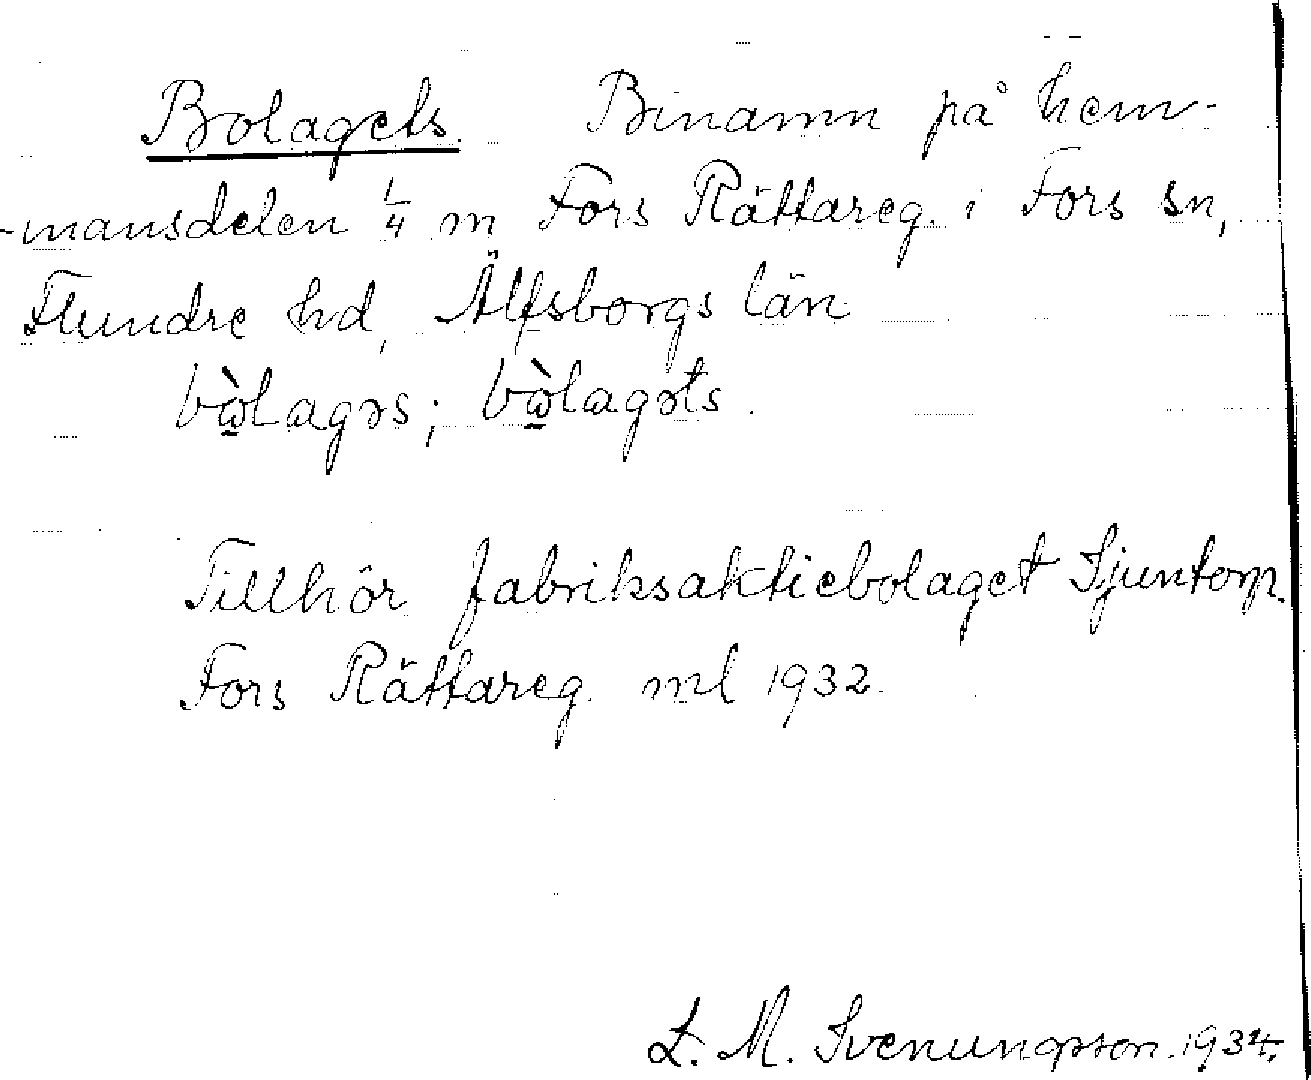 Bolagets. Binamn på hem-
-mansdelen 1/4 m Fors Rättareg. i Fors sn,
Flundre hd, Älfsborgs län
bὼ̠lagəs; bὼ̠lagəts.
Tillhör fabriksaktiebolaget Sjuntorp.
Fors Rättareg. ml 1932.
L. M. Svenungsson. 1934.